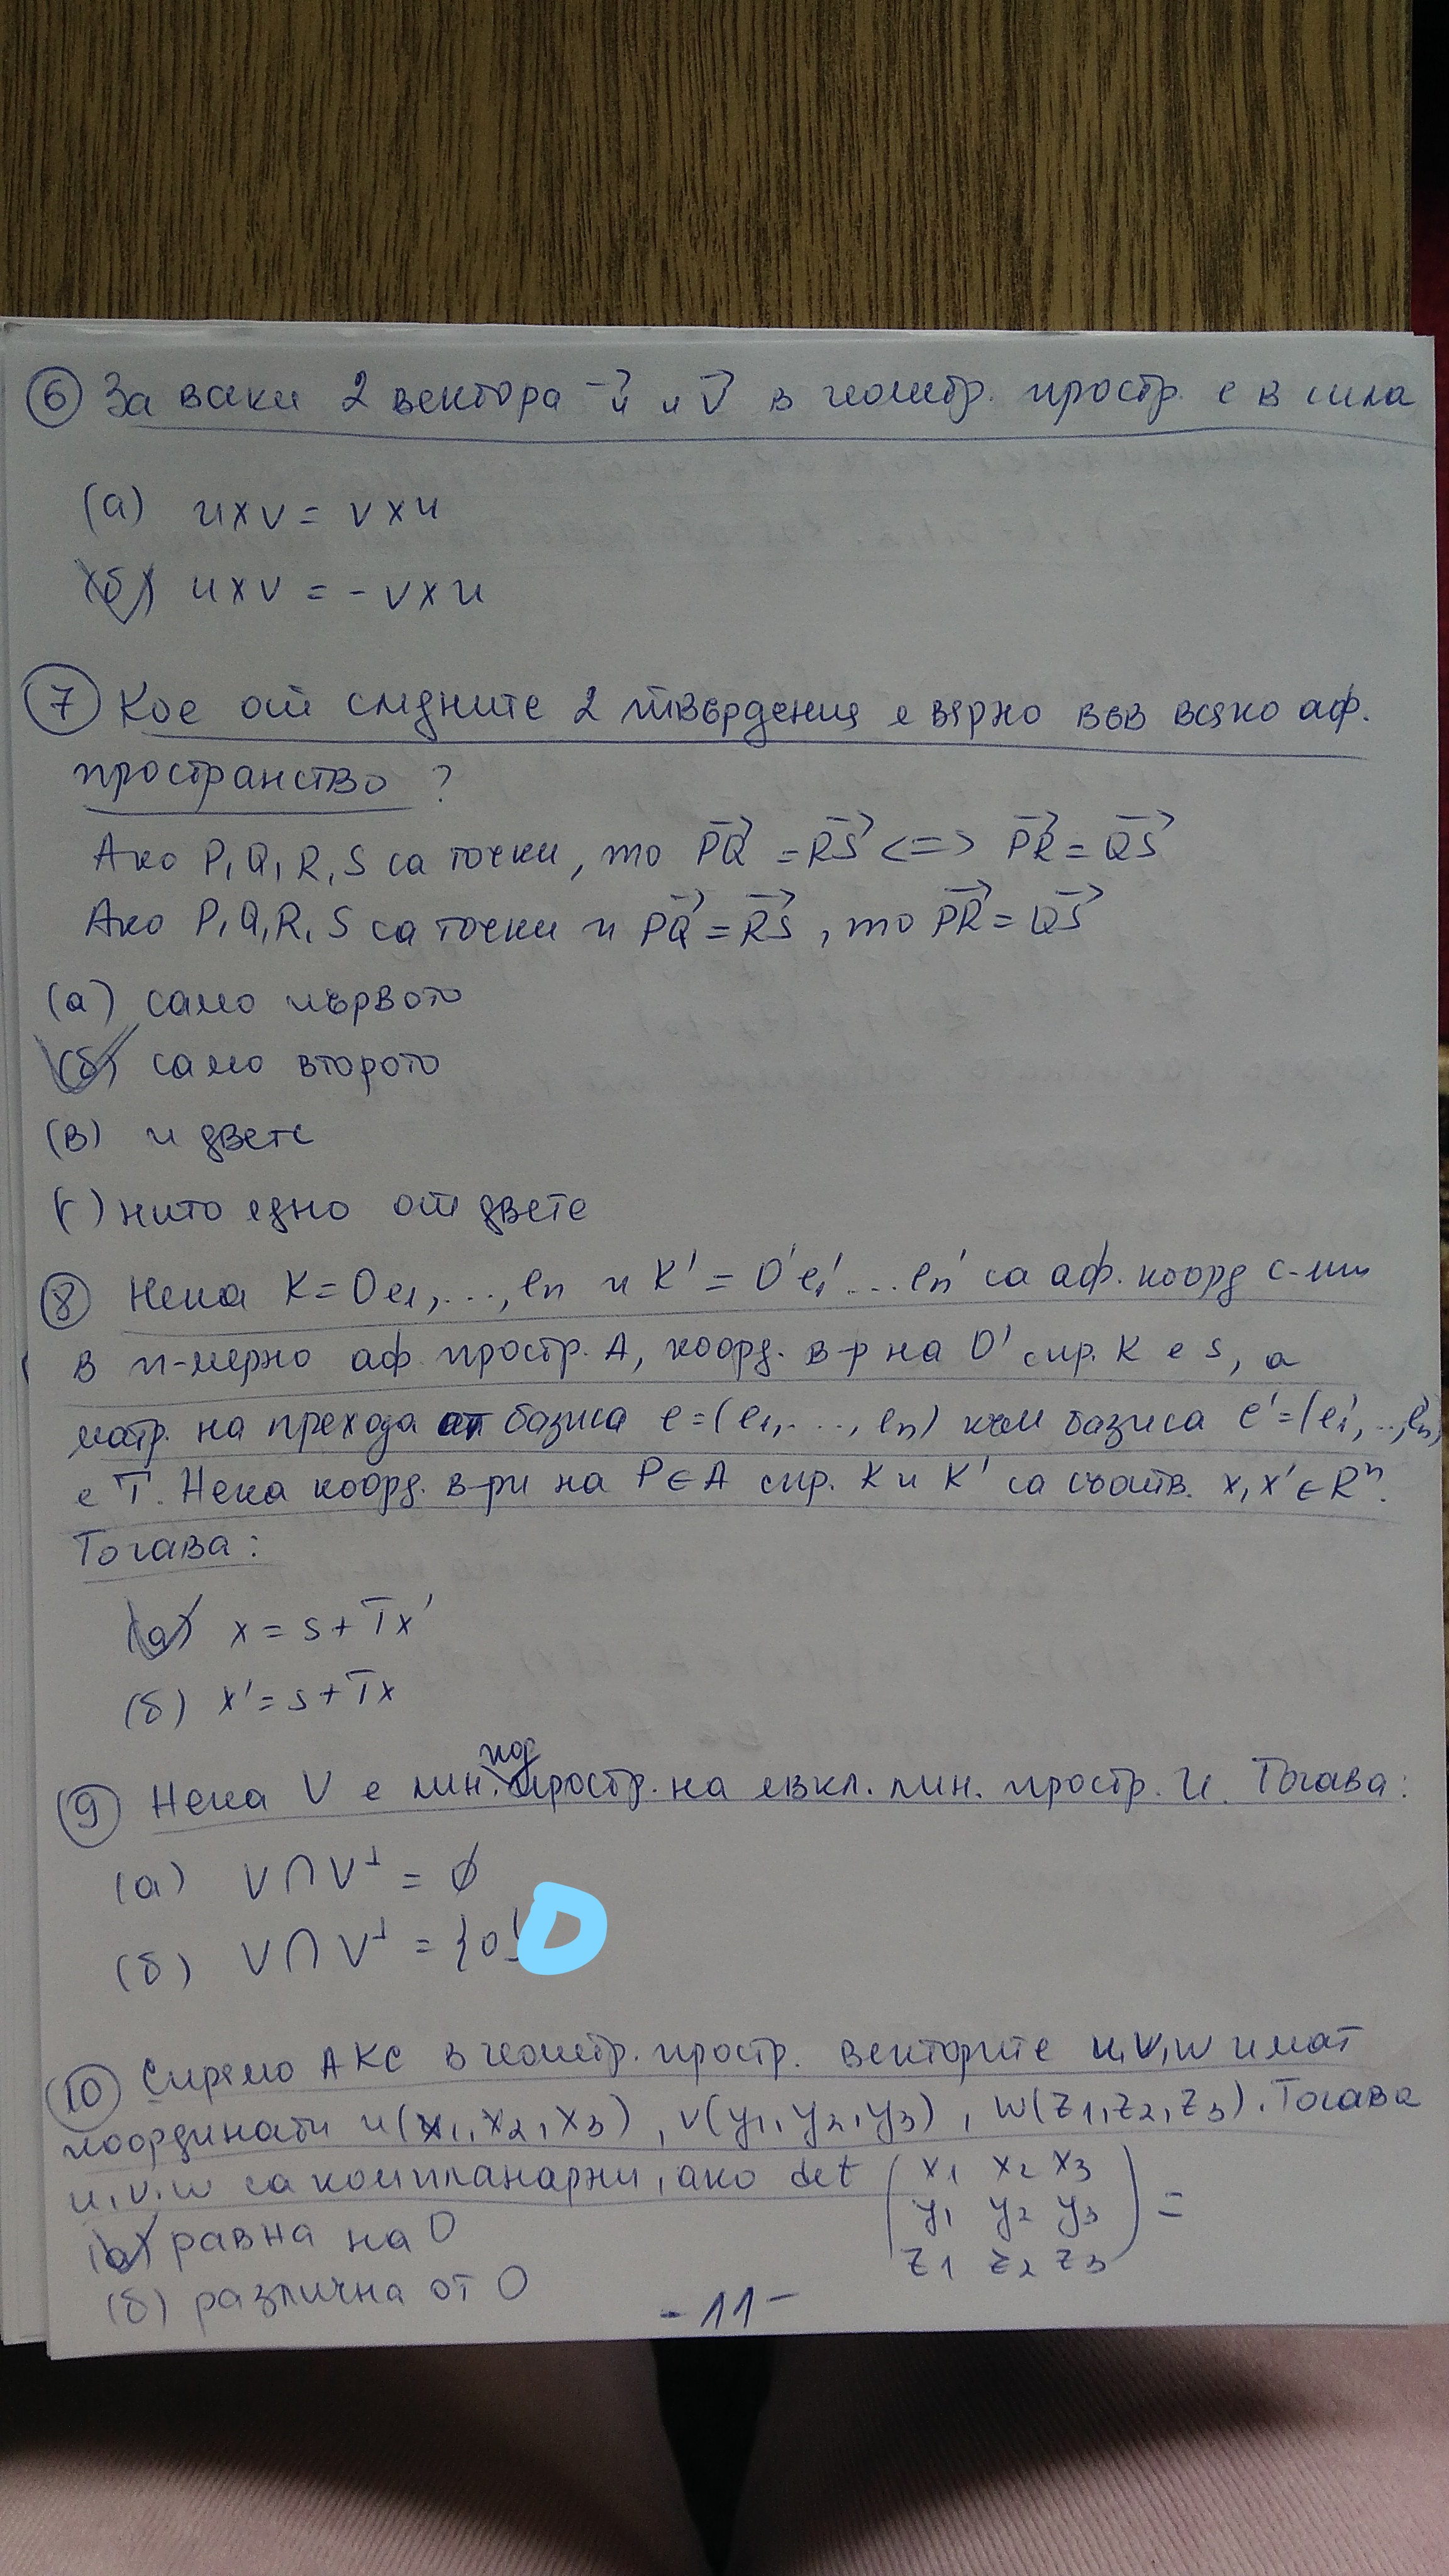 ⑥ За всеки 2 вектора u и v в геометр. простр. е в сила
(а) u×v = v×u
(б) u×v = -v×u
⑦ Кое от следните 2 твърдения е вярно във всяко аф.
пространство ?
Ако P,Q,R,S са точки, то PQ = RS <=> PR = QS
Ако P,Q,R,S са точки и PQ = RS, то PR = QS
(а) само първото
(б) само второто
(в) и двете
(г) нито едно от двете
⑧ Нека K=Oe1,...,en и K' = O'e1'...en' са аф. коорд с-ми
в n-мерно аф. простр. A, коорд. в-р на O' спр. K е s, а
матр. на прехода от базиса e=(e1,...,en) към базиса e'=(e1',..,en')
е T. Нека коорд. в-ри на P∈A спр. K и K' са съотв. x,x'∈R^n.
Тогава:
(а) x = s+Tx'
(б) x' = s+Tx
⑨ Нека V е лин. подпростр. на евкл. лин. простр. U. Тогава:
(а) V∩V⊥ = ∅
(б) V∩V⊥ = {0} D
⑩ Спрямо АКС в геометр. простр. векторите u,v,w имат
координати u(x1,x2,x3), v(y1,y2,y3), w(z1,z2,z3). Тогава
u,v,w са компланарни, ако det (x1 x2 x3
y1 y2 y3) =
z1 z2 z3
(а) равна на 0
(б) различна от 0
-11-